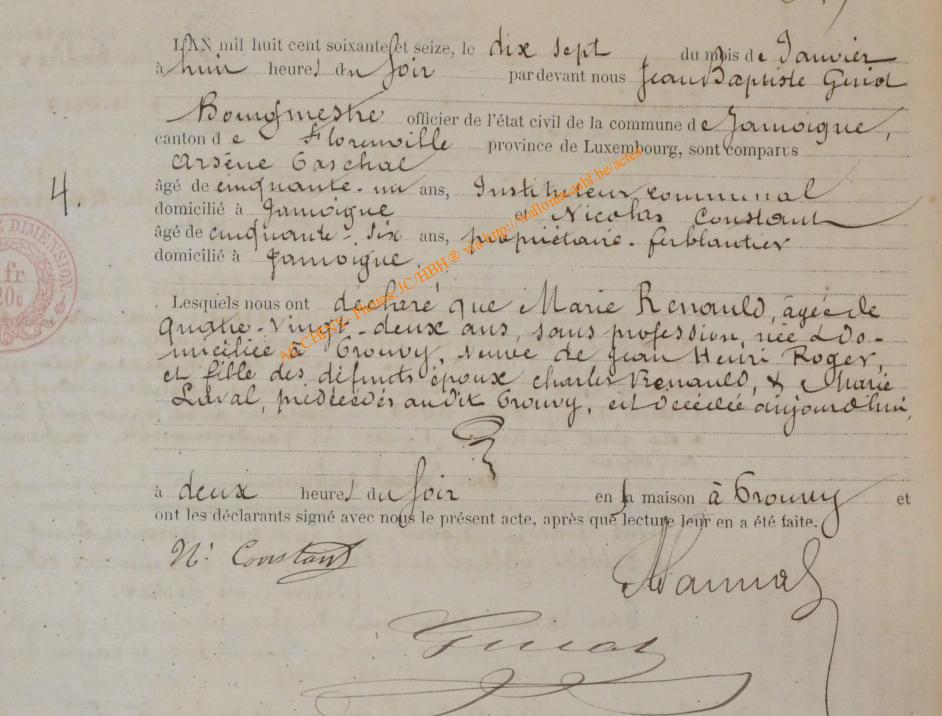 L'AN mil huit cent soixante et seize, le dix sept du mois de Janvier
à huit heures du soir par devant nous Jean Baptiste Guiot
Bourgmestre officier de l'état civil de la commune de Jamoigne,
canton de Florenville province de Luxembourg, sont comparus
Arsène
âgé de cinquante-un ans, Instituteur communal
domicilié à Jamoigne et Nicolas Constant
âgé de cinquante-six ans, propriétaire-ferblantier
domicilié à Jamoigne.
4.
DIMENSION
fr
20c
AC CHINY- Photos JC/HBH® via http://wallonia-asbl.be/actes
Lesquels nous ont déclaré que Marie Renauld, âgée de
quatre-vingt-deux ans, sans profession, née & do-
miciliée à Prouvy, veuve de Jean Henri Roger,
et fille des défunts époux Charles Renauld, & Marie
Laval, prédécédés audit Prouvy, est décédée aujourd'hui,
à deux heures du soir en sa maison à Prouvy et
ont les déclarants signé avec nous le présent acte, après que lecture leur en a été faite.
N. Constant
Guiot